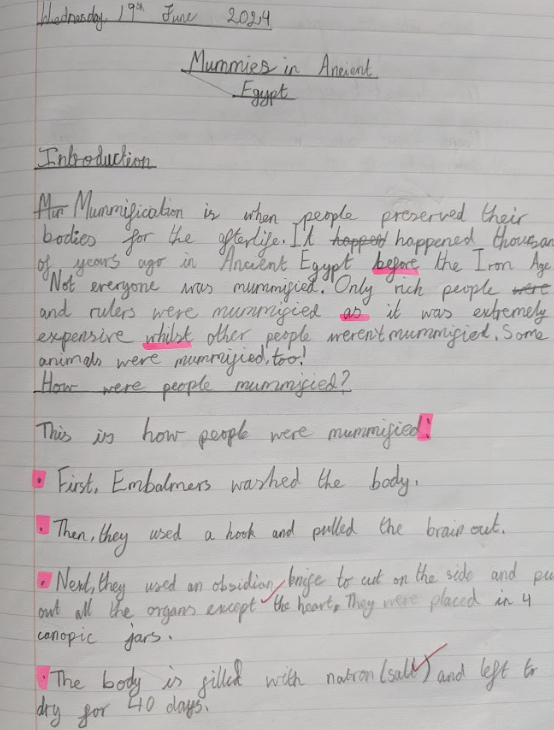 Wednesday, 19th June 2024
Mummies in Ancient
Egypt
Introduction
Mummification is when people preserved their
bodies for the afterlife. It happened
of years ago in Ancient Egypt before the Iron Age
Not everyone was mummified. Only rich people were
and rulers were mummified as it was extremely
expensive whilst other people weren't mummified. Some
animals were mummified, too!
How were people mummified?
This is how people were mummified:
• First, Embalmers washed the body.
• Then, they used a hook and pulled the brain out.
• Next, they used an obsidian knife to cut on the side and
out all the organs except the heart. They were placed in 4
canopic jars.
• The body is filled with natron (salt) and left to
dry for 40 days.